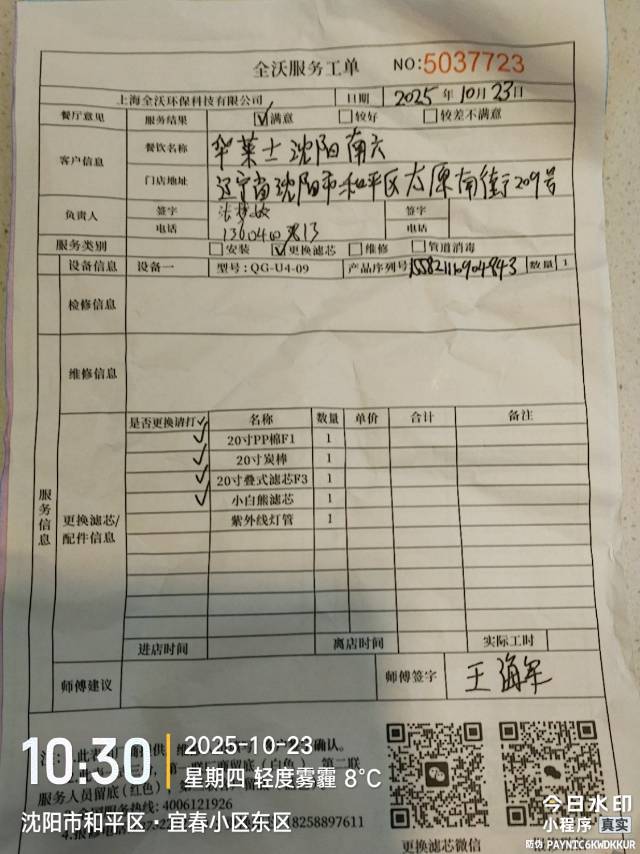 全沃服务工单 NO:5037723
上海全沃环保科技有限公司 日期 2025年10月23日
餐厅意见 服务结果 ☑满意 □较好 □较差不满意
客户信息 餐饮名称 华莱士沈阳南六
门店地址 辽宁省沈阳市和平区太原南街209号
负责人 签字 签字
电话 电话
服务类别 □安装 ☑更换滤芯 □维修 □管道消毒
设备信息 设备一 型号:QG-U4-09 产品序列号 数量 1
检修信息
维修信息
服务信息
更换滤芯/配件信息
是否更换请打✓ 名称 数量 单价 合计 备注
✓ 20寸PP棉F1 1
✓ 20寸炭棒 1
✓ 20寸叠式滤芯F3 1
✓ 小白熊滤芯 1
紫外线灯管 1
进店时间 离店时间 实际工时
师傅建议 师傅签字 王海军
服务人员留底(红色)
全国服务热线: 4006121926
18258897611
更换滤芯微信
10:30
2025-10-23
星期四 轻度雾霾 8℃
沈阳市和平区·宜春小区东区
今日水印
小程序 真实
防伪 PAYNTC6KWDKKUR